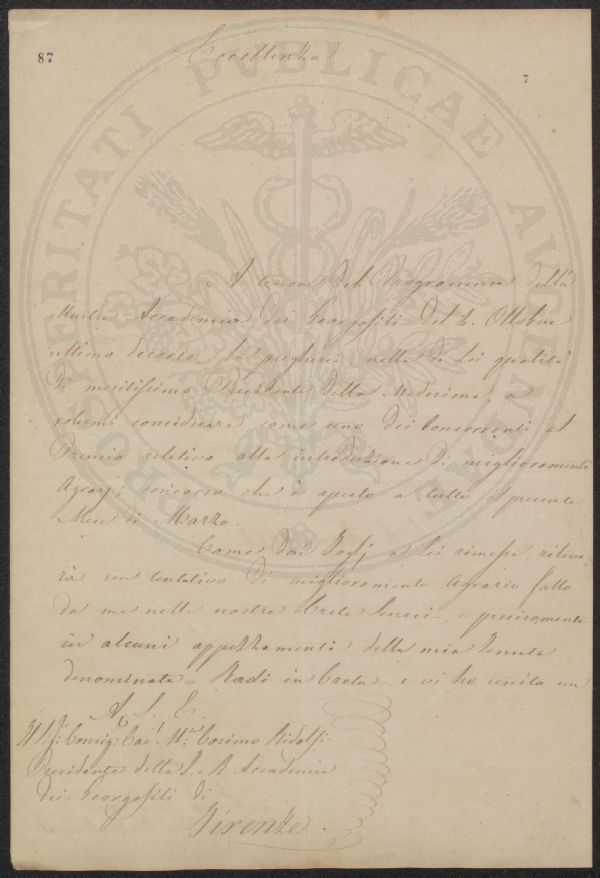 87
7
Eccellenza
A tenore del Programma della
Illustre Accademia dei Georgofili del 2. Ottobre
ultimo decorso, La pregherei, nella di Lei qualità
di meritissimo Presidente della Medesima, a
volermi considerare come uno dei Concorrenti al
Premio relativo alla introduzione di miglioramenti
Agrarj; concorso che è aperto a tutto il presente
Mese di Marzo.
Come dai Foglj a Lei rimessi, rileve-
rà un tentativo di miglioramento Agrario fatto
da me nelle nostre Crete Senesi, e precisamente
in alcuni appezzamenti della mia Tenuta
denominata = Radi in Creta, e vi ho unito un
A S. E.
Il Consig: Cav: Cosimo Ridolfi
Presidente della I. e R. Accademia
dei Georgofili di
Firenze.
PROSPERITATI PVBLICAE AVGENDAE